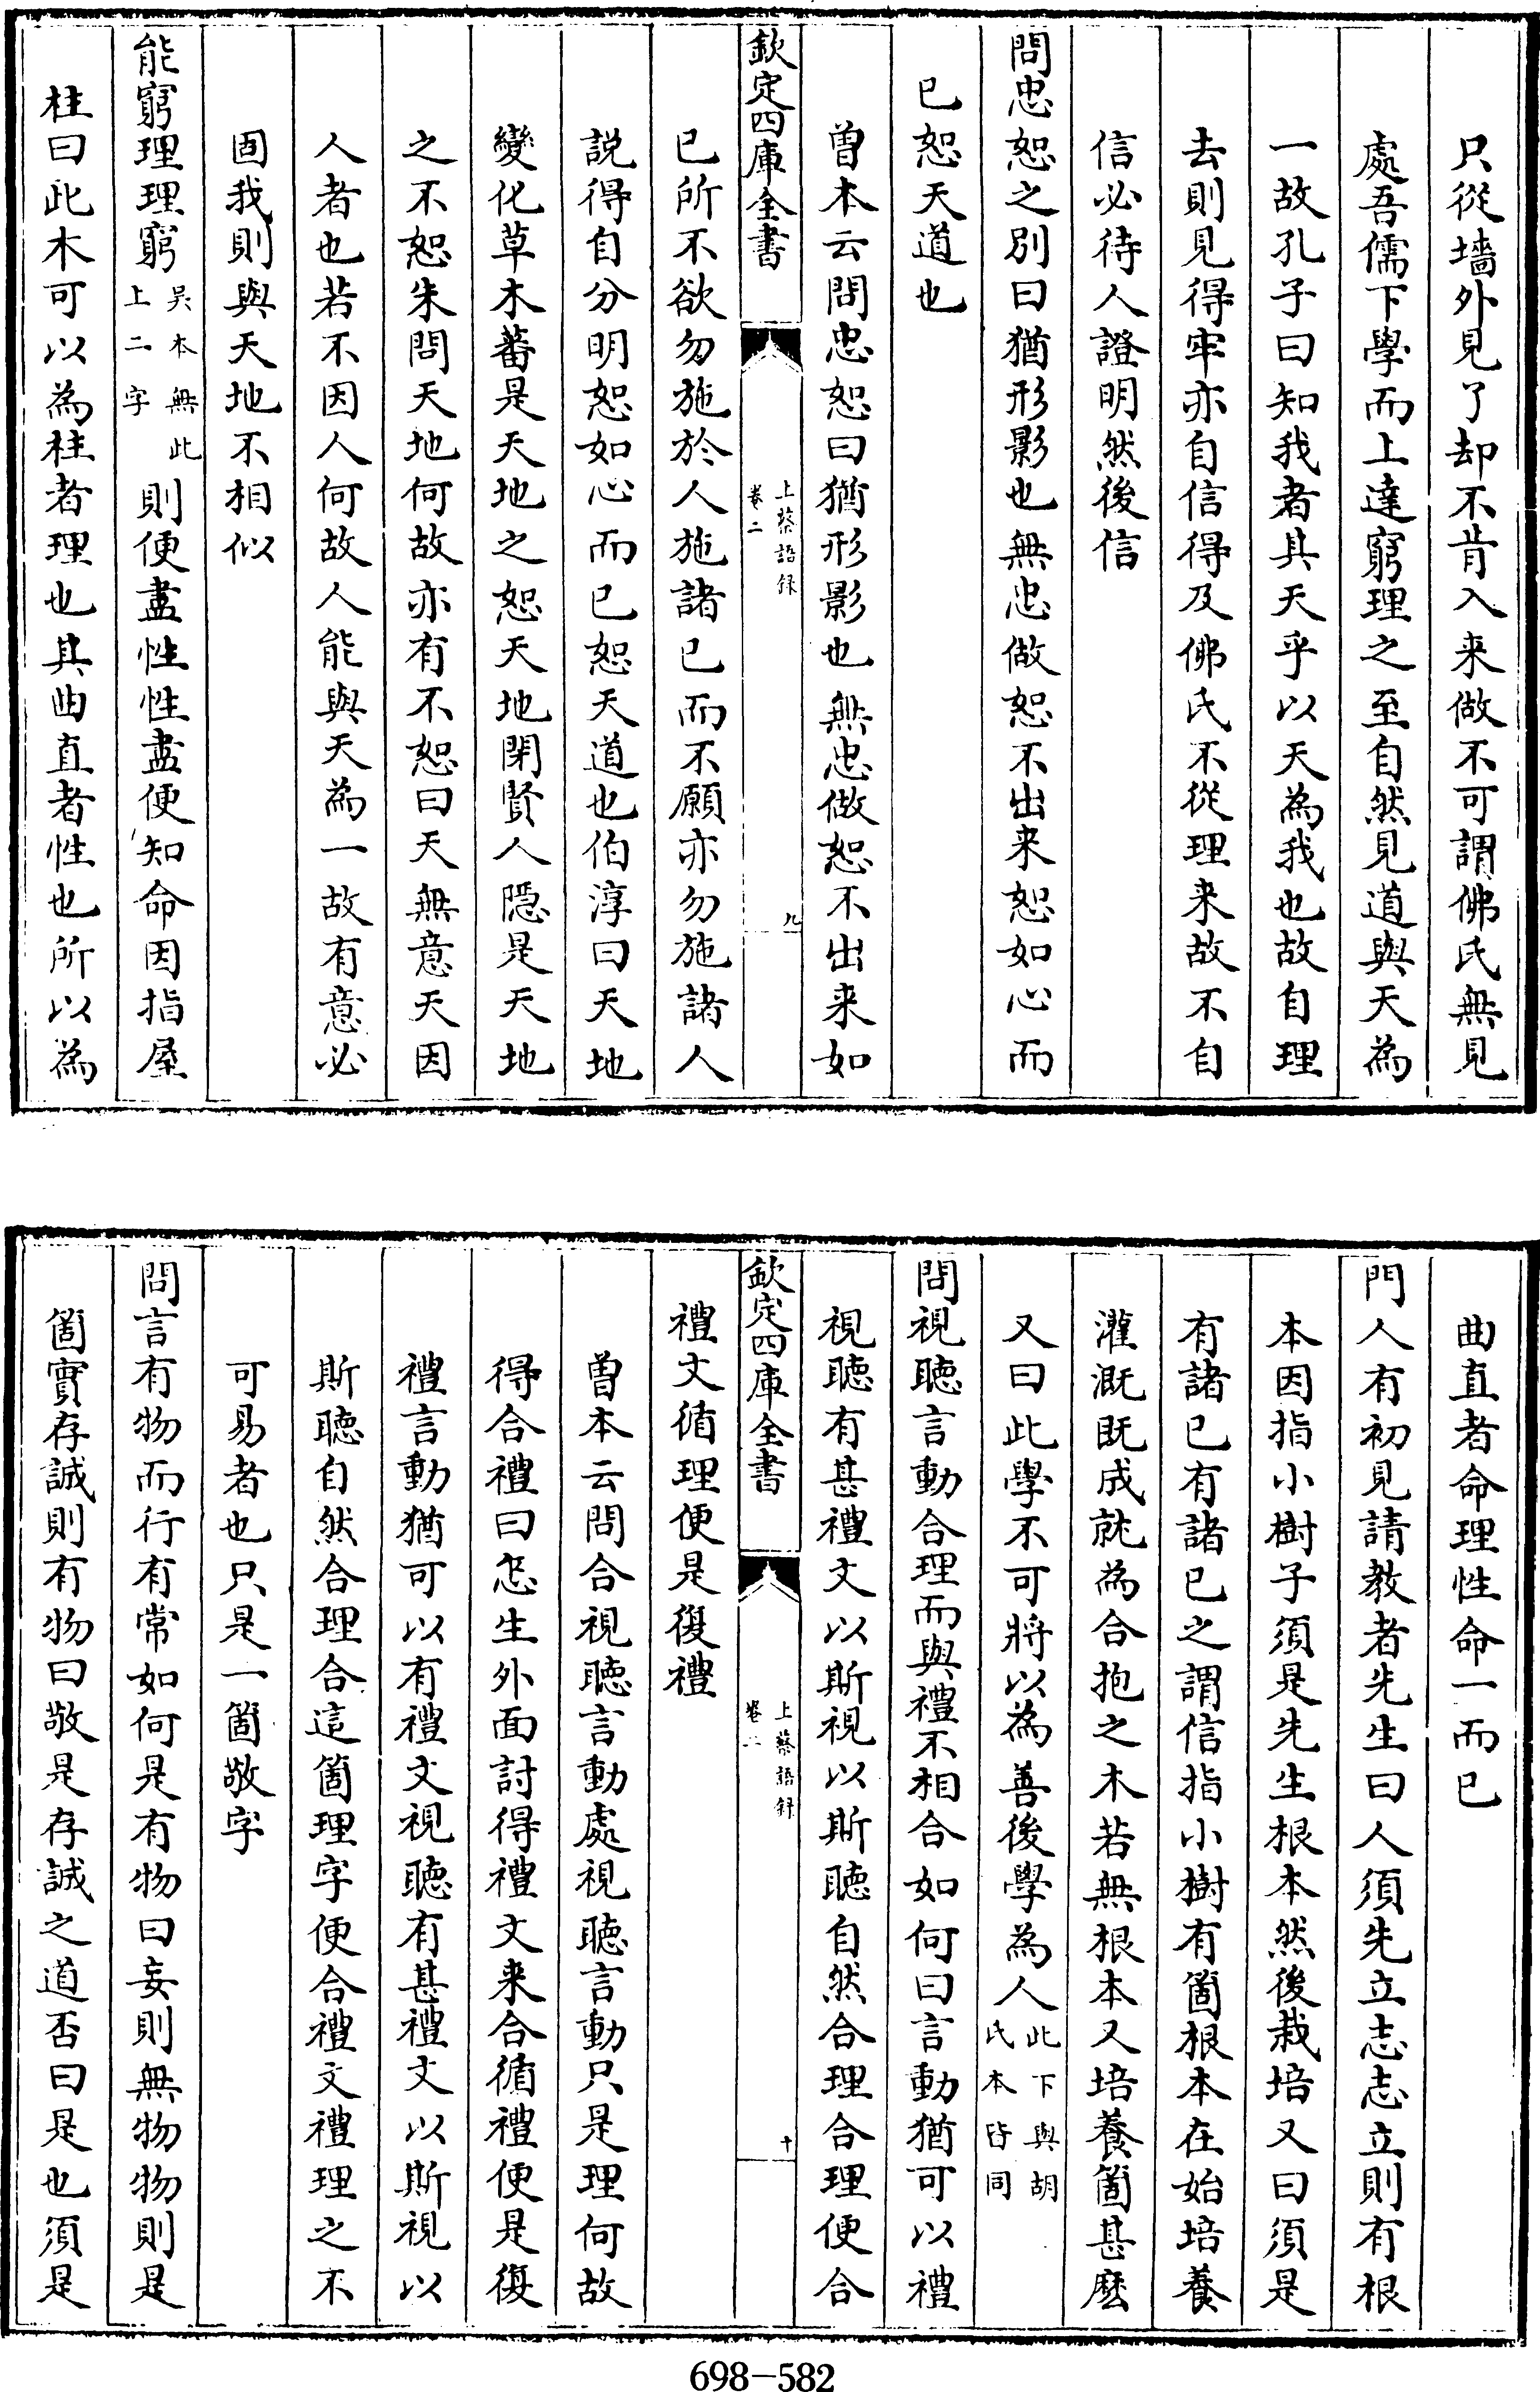 只從墻外見了却不肯入来做不可謂佛氏無見
處吾儒下學而上達窮理之至自然見道與天為
一故孔子曰知我者其天乎以天為我也故自理
去則見得牢亦自信得及佛氏不從理来故不自
信必待人證明然後信
問忠恕之別曰猶形影也無忠做恕不出来恕如心而
已恕天道也
曽本云問忠恕曰猶形影也無忠做恕不出来如
欽定四庫全書
上蔡語録
卷二
九
已所不欲勿施於人施諸已而不願亦勿施諸人
説得自分明恕如心而已恕天道也伯淳曰天地
變化草木蕃是天地之恕天地閉賢人隠是天地
之不恕朱問天地何故亦有不恕曰天無意天因
人者也若不因人何故人能與天為一故有意必
固我則與天地不相似
能窮理理窮吳本無此上二字則便盡性性盡便知命因指屋
柱曰此木可以為柱者理也其曲直者性也所以為
曲直者命理性命一而已
門人有初見請教者先生曰人須先立志志立則有根
本因指小樹子須是先生根本然後栽培又曰須是
有諸已有諸已之謂信指小樹有箇根本在始培養
灌溉既成就為合抱之木若無根本又培養箇甚麽
又曰此學不可將以為善後學為人此下與胡氏本皆同
問視聽言動合理而與禮不相合如何曰言動猶可以禮
視聽有甚禮文以斯視以斯聽自然合理合理便合
欽定四庫全書
上蔡語録
卷二
十
禮文循理便是復禮
曽本云問合視聽言動處視聽言動只是理何故
得合禮曰怎生外面討得禮文来合循禮便是復
禮言動猶可以有禮文視聽有甚禮文以斯視以
斯聽自然合理合這箇理字便合禮文禮理之不
可易者也只是一箇敬字
問言有物而行有常如何是有物曰妄則無物物則是
箇實存誠則有物曰敬是存誠之道否曰是也須是
698-582